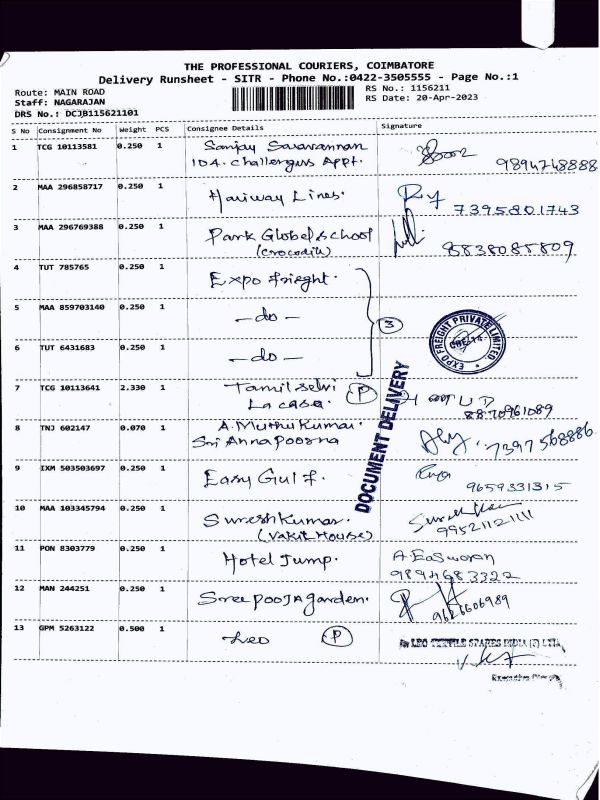 THE PROFESSIONAL COURIERS, COIMBATORE
Delivery Runsheet - SITR - Phone No.:0422-3505555 - Page No.:1
Route: MAIN ROAD
Staff: NAGARAJAN
DRS No.: DCJB115621101
RS No.: 1156211
RS Date: 20-Apr-2023
S No Consignment No Weight PCS Consignee Details Signature
1 TCG 10113581 0.250 1 Sanjay Saravannan
104. Challengers Appt. 9894748888
2 MAA 296858717 0.250 1 Hariway Lines. 7395801743
3 MAA 296769388 0.250 1 Park Global School
(Crocodile) 8838085809
4 TUT 785765 0.250 1 Expo frieght.
5 MAA 859703140 0.250 1 -do- 3
EXPO FREIGHT PRIVATE LIMITED
6 TUT 6431683 0.250 1 -do-
7 TCG 10113641 2.330 1 Tamilselvi P
La casa. 8870961089
DOCUMENT DELIVERY
8 TNJ 602147 0.070 1 A.Muthukumar.
Sri Annapoorna 7397568886
9 IXM 503503697 0.250 1 Easy Gulf.
9659331315
10 MAA 103345794 0.250 1 Sureshkumar.
(Vakil House) 99521121111
11 PON 8303779 0.250 1 Hotel Jump. A.Easwaran
9894683322
12 MAN 244251 0.250 1 Sree Pooja garden. 9626606989
13 GPM 5263122 0.500 1 Leo P LEO TEXTILE SPARES INDIA (P) LTD.